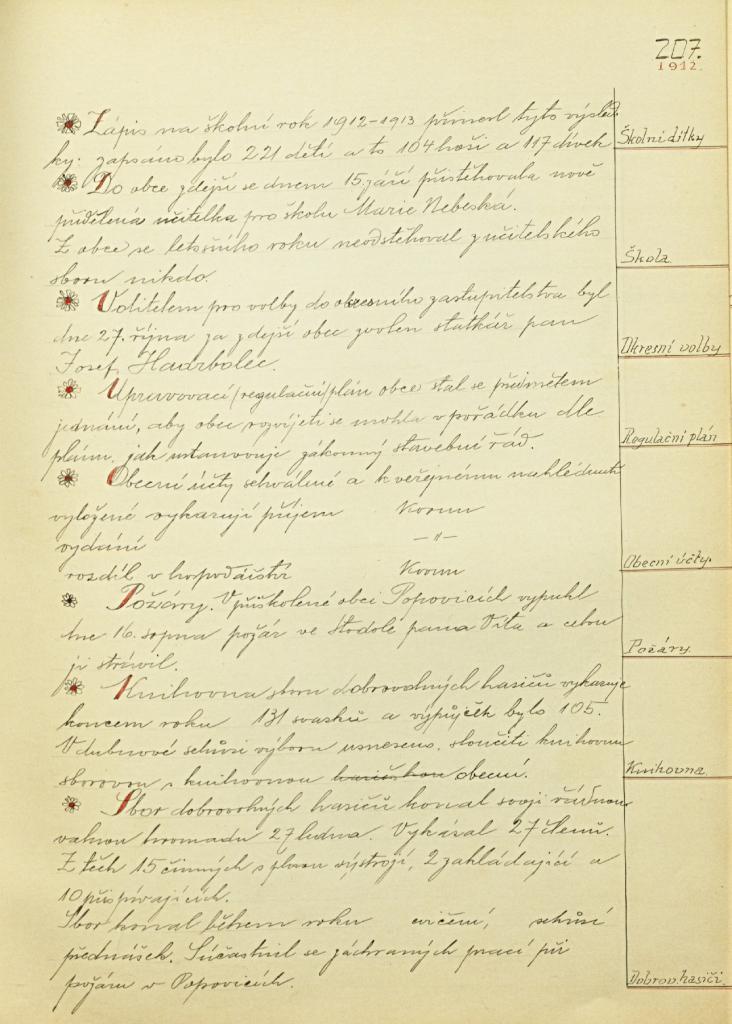 207.
1912.
Zápis na školní rok 1912-1913 přinesl tyto výsled-
Školní dítky
ky: zapsáno bylo 221 dětí a to 104 hoši a 117 dívek
Do obce zdejší se dnem 15. září přistěhovala nově
přidělená učitelka pro školu Marie Nebeská.
Z obce se letošního roku neodstěhoval z učitelského
Škola
sboru nikdo.
Volitelem pro volby do okresního zastupitelstva byl
dne 27. října za zdejší obec zvolen statkář pan
Okresní volby
Josef Hadrbolec.
Upravovací /regulační/ plán obce stal se předmětem
jednání, aby obec rozvíjeti se mohla v pořádku dle
Regulační plán
plánu, jak ustanovuje zákonný stavební řád.
Obecní účty schválené a k veřejnému nahlédnutí
vyložené vykazují příjem Korun
vydání —"—
Obecní účty.
rozdíl v hospodářství Korun
Požáry. V přiškolené obci Popovicích vypukl
dne 16. srpna požár ve stodole pana Víta a celou
Požáry.
ji strávil.
Knihovna sboru dobrovolných hasičů vykazuje
koncem roku 131 svazků a výpůjček bylo 105.
V dubnové schůzi výboru usneseno, sloučiti knihovnu
Knihovna.
sborovou s knihovnou hasičskou obecní.
Sbor dobrovolných hasičů konal svoji řádnou
valnou hromadu 27 ledna. Vykázal 27 členů.
Z těch 15 činných s plnou výstrojí, 2 zakládající a
10 přispívajících.
Sbor konal během roku cvičení, schůzí
přednášek. Súčastnil se záchranných prací při
Dobrov. hasiči
požáru v Popovicích.